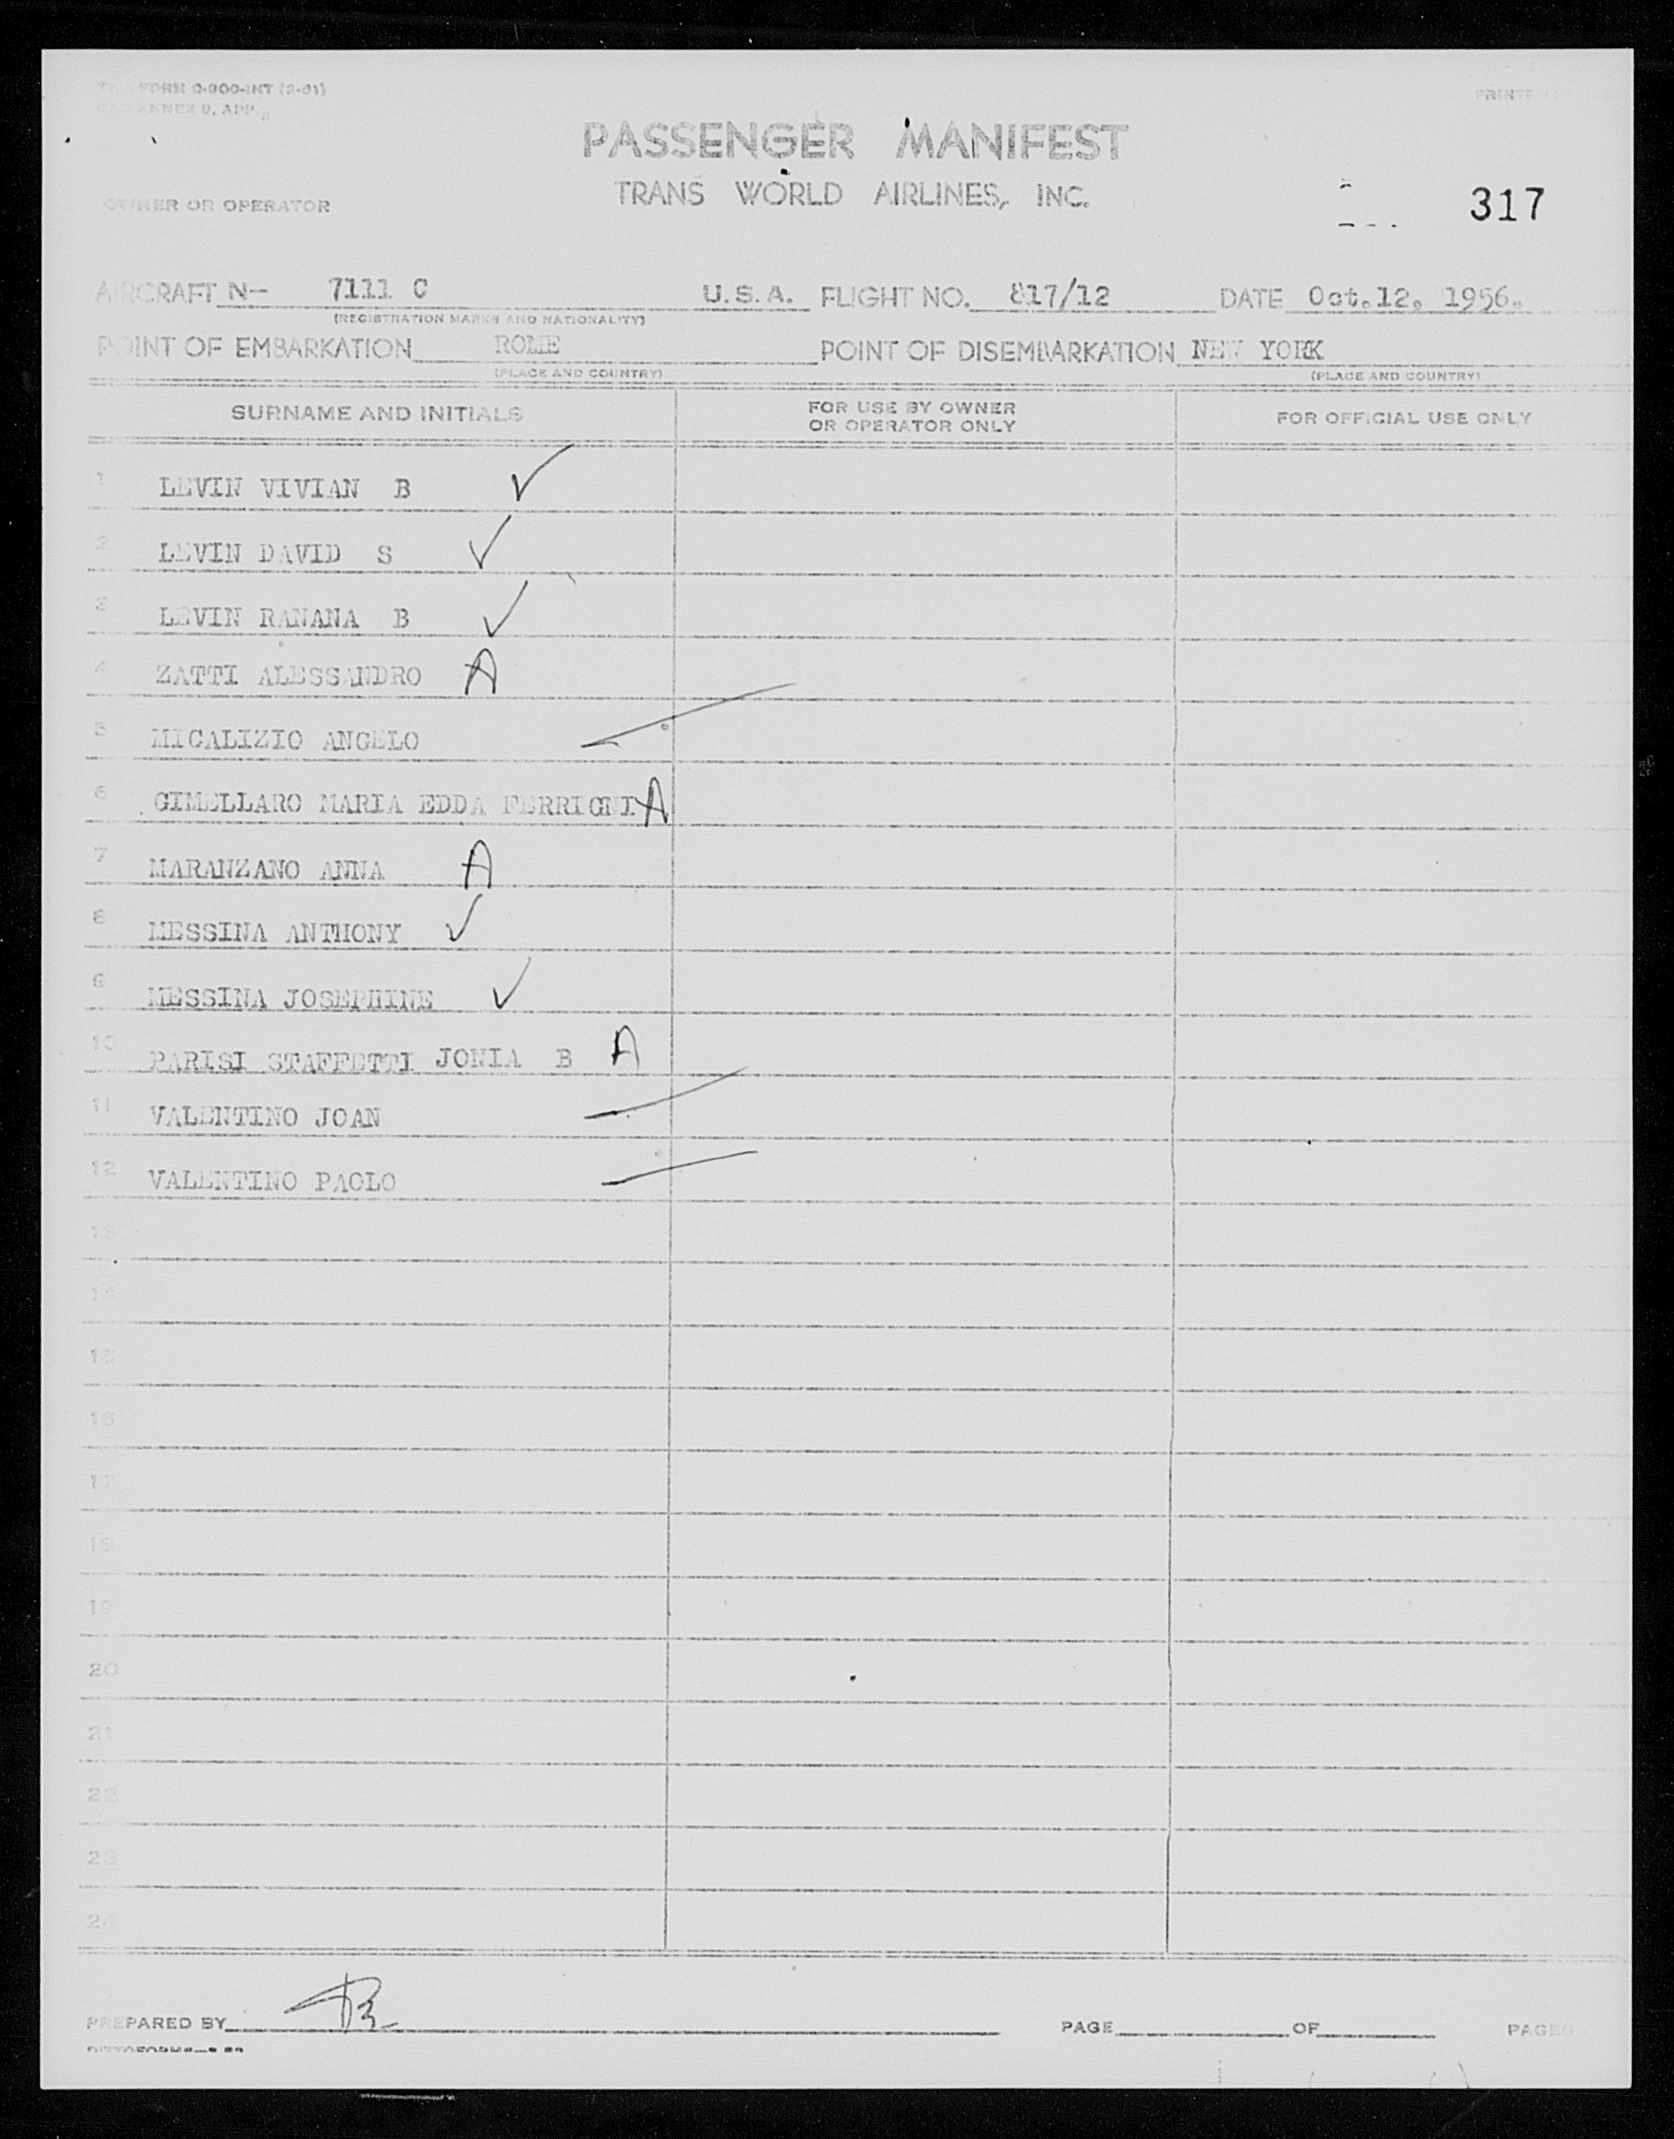 FORM O-900-INT (2-51)
ANNEX 9, APP
PASSENGER MANIFEST
TRANS WORLD AIRLINES, INC.
OWNER OR OPERATOR
317
AIRCRAFT N— 7111 C U.S.A. FLIGHT NO. 817/12 DATE Oct.12, 1956.
(REGISTRATION MARKS AND NATIONALITY)
POINT OF EMBARKATION ROME POINT OF DISEMBARKATION NEW YORK
(PLACE AND COUNTRY) (PLACE AND COUNTRY)
SURNAME AND INITIALS FOR USE BY OWNER OR OPERATOR ONLY FOR OFFICIAL USE ONLY
1 LEVIN VIVIAN B ✓
2 LEVIN DAVID S ✓
3 LEVIN RANANA B ✓
4 ZATTI ALESSANDRO A
5 MICALIZIO ANGELO
6 GIMELLARO MARIA EDDA FERRIGNI A
7 MARANZANO ANNA A
8 MESSINA ANTHONY ✓
9 MESSINA JOSEPHINE ✓
10 PARISI STAFFETTI JONIA B A
11 VALENTINO JOAN
12 VALENTINO PAOLO
13
14
15
16
17
18
19
20
21
22
23
24
PREPARED BY PAGE OF PAGES